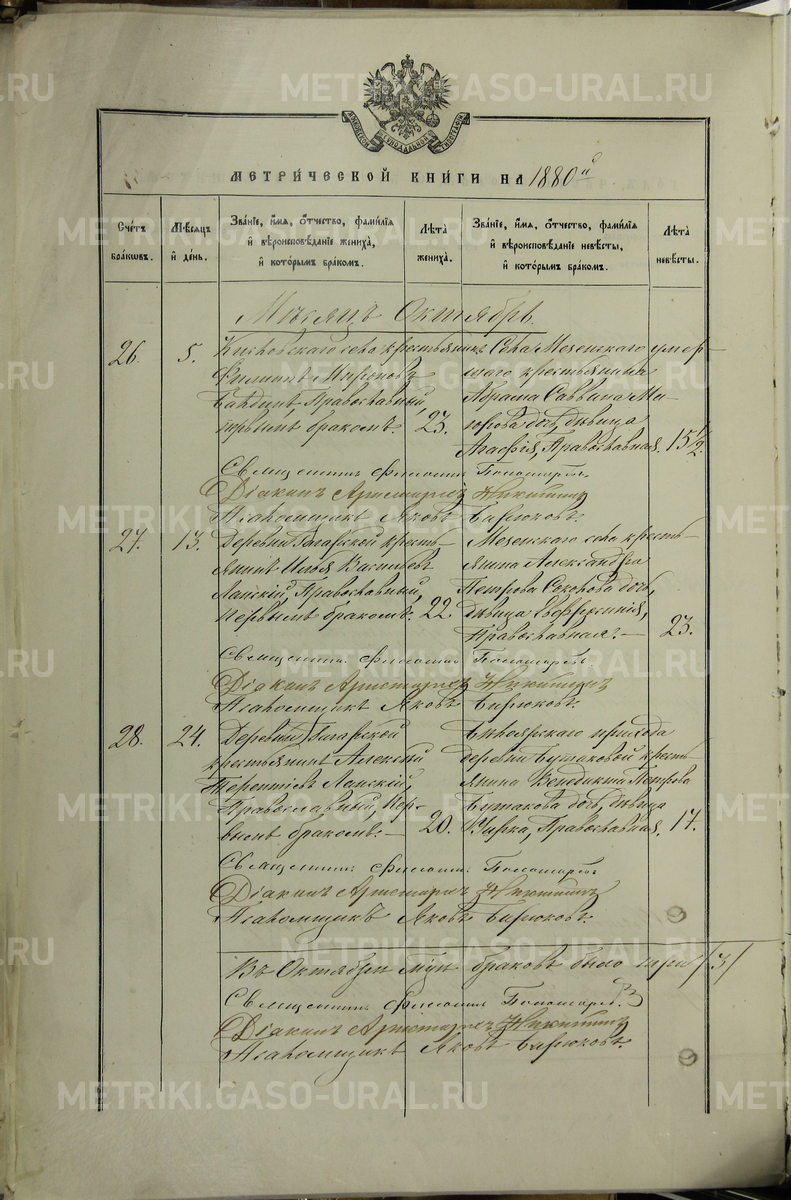 МЕТРИ́ЧЕСКОЙ КНИ́ГИ НА 1880й
Сче́тъ бра́ковъ.
Мѣ́сяцъ и҆ де́нь.
Зва́нїе, и҆́мя, ѻ҆́тчество, фами́лїя и҆ вѣроисповѣ́данїе жениха̀, и҆ кото́рымъ бра́комъ.
Лѣ́та жениха̀.
Зва́нїе, и҆́мя, ѻ҆́тчество, фами́лїя и҆ вѣроисповѣ́данїе невѣ́сты, и҆ кото́рымъ бра́комъ.
Лѣ́та невѣ́сты.
Мѣсяцъ Октябрь.
26. 5.
села крестьянинъ
Филиппъ Мироновъ
Православный
первымъ бракомъ. 23.
Села Мезенскаго умер-
шаго крестьянина
Абрама Саввина
дочь, дѣвица
Агафія, Православная. 15 1/2.
Священникъ
Діаконъ Аристархъ Никитинъ
Псаломщикъ Яковъ Бирюковъ.
27. 13.
Деревни Гагарской кресть-
янинъ Илья Васильевъ
Ланскій, Православный,
первымъ бракомъ. 22.
Мезенскаго села кресть-
янина Александра
Петрова дочь,
дѣвица
Православная. — 23.
Священникъ
Діаконъ Аристархъ Никитинъ
Псаломщикъ Яковъ Бирюковъ.
28. 24.
Деревни Гагарской
крестьянинъ Алексѣй
Терентіевъ Ланскій,
Православный, пер-
вымъ бракомъ. — 20.
Бѣлоярскаго прихода
деревни Бутаковой кресть-
янина Венедикта Петрова
Бутакова дочь, дѣвица
Православная. 17.
Священникъ
Діаконъ Аристархъ Никитинъ
Псаломщикъ Яковъ Бирюковъ.
Въ Октябрѣ м-цѣ браковъ было три /3/
Священникъ
Діаконъ Аристархъ Никитинъ
Псаломщикъ Яковъ Бирюковъ.
METRIKI.GASO-URAL.RU